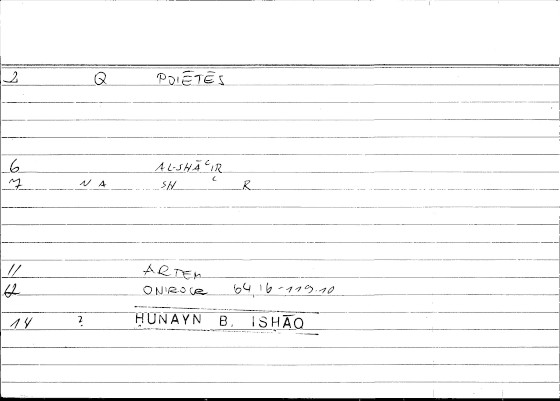 2 Q POIĒTĒS
6 AL-SHĀʿIR
7 N A SH ʿ R
11 ARTEM
12 ONIROCR 64,16-119.10
14 ? ḤUNAYN B. ISḤĀQ